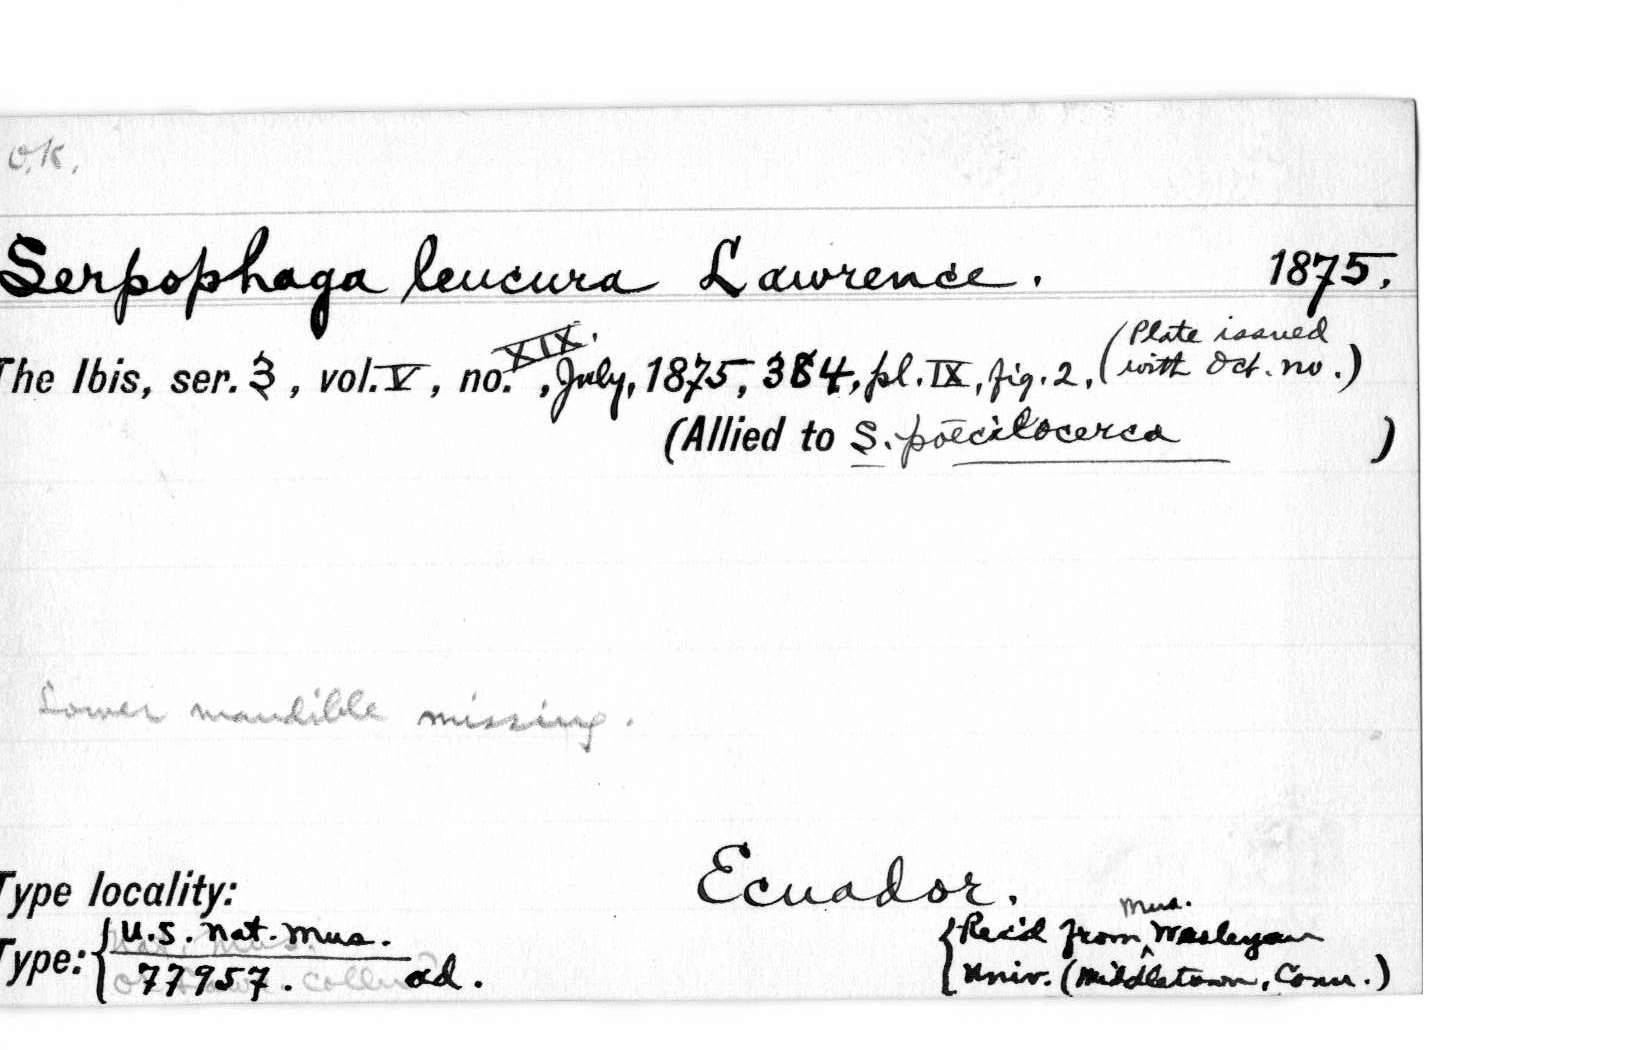 O.K.
Serpophaga leucura Lawrence. 1875.
The Ibis, ser. 3, vol. V, no. XIX., July, 1875, 384, pl. IX, fig. 2, (Plate issued
with Oct. no.)
(Allied to S. pœcilocerca )
Lower mandible missing.
Type locality: Ecuador.
Type: { U.S. Nat. Mus. { Rec'd from Mus. Wesleyan
77957. ad. Univ. (Middletown, Conn.)